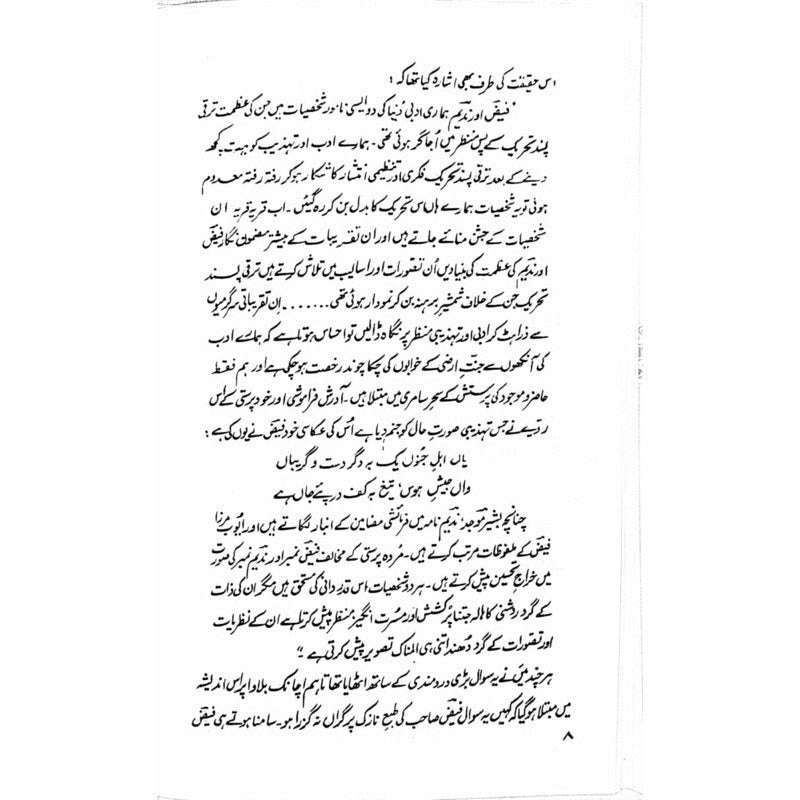 اس حقیقت کی طرف بھی اشارہ کیا تھا کہ :
" فیضؔ اور ندیمؔ ہماری ادبی دُنیا کی دو ایسی نامور شخصیات ہیں جن کی عظمت ترقی
پسند تحریک کے پس منظر میں اُجاگر ہوئی تھی ۔ ہمارے ادب اور تہذیب کو بہت کچھ
دینے کے بعد ترقی پسند تحریک فکری اور تنظیمی انتشار کا شکار ہو کر رفتہ رفتہ معدوم
ہوئی تو یہ شخصیات ہمارے ہاں اس تحریک کا بدل بن کر رہ گئیں ۔ اب قریہ قریہ ان
شخصیات کے جشن منائے جاتے ہیں اور ان تقریبات کے بیشتر مضمون نگار فیضؔ
اور ندیمؔ کی عظمت کی بنیادیں اُن تصورات اور اسالیب میں تلاش کرتے ہیں ترقی پسند
تحریک جن کے خلاف شمشیرِ برہنہ بن کر نمودار ہوئی تھی . . . . . . . اِن تقریباتی سرگرمیوں
سے ذرا ہٹ کر ادبی اور تہذیبی منظر پر نگاہ ڈالیں تو احساس ہوتا ہے کہ ہمارے ادب
کی آنکھوں سے جنتِ ارضی کے خوابوں کی چکا چوند رخصت ہو چکی ہے اور ہم فقط
حاضر و موجود کی پرستش کے سحرِ سامری میں مبتلا ہیں ۔ آدرش فراموشی اور خود پرستی کے اس
رویّے نے جس تہذیبی صورتِ حال کو جنم دیا ہے اُس کی عکاسی خود فیضؔ نے یوں کی ہے :
یاں اہلِ جُنوں یک بہ دگر دست و گریباں
واں جیشِ ہوس، تیغ بہ کف درپئے جاں ہے
چنانچہ بشیر موجدؔ، ندیم نامہ میں فرمائشی مضامین کے انبار لگاتے ہیں اور ایوب مرزا
فیضؔ کے ملفوظات مرتب کرتے ہیں ۔ مُردہ پرستی کے مخالف فیضؔ نمبر اور ندیمؔ نمبر کی صورت
میں خراجِ تحسین پیش کرتے ہیں ۔ ہر دو شخصیات اس قدر دانی کی مستحق ہیں مگر ان کی ذات
کے گرد روشنی کا ہالہ جتنا پُرکشش اور مسرت انگیز منظر پیش کرتا ہے ان کے نظریات
اور تصورات کے گرد دُھند اتنی ہی المناک تصویر پیش کرتی ہے ۔"
ہر چند میَں نے یہ سوال بڑی درد مندی کے ساتھ اٹھایا تھا تاہم اچانک بلاوا پر اس اندیشہ
میں مبتلا ہو گیا کہ کہیں یہ سوال فیضؔ صاحب کی طبعِ نازک پر گراں نہ گزرا ہو ۔ سامنا ہوتے ہی فیضؔ
۸